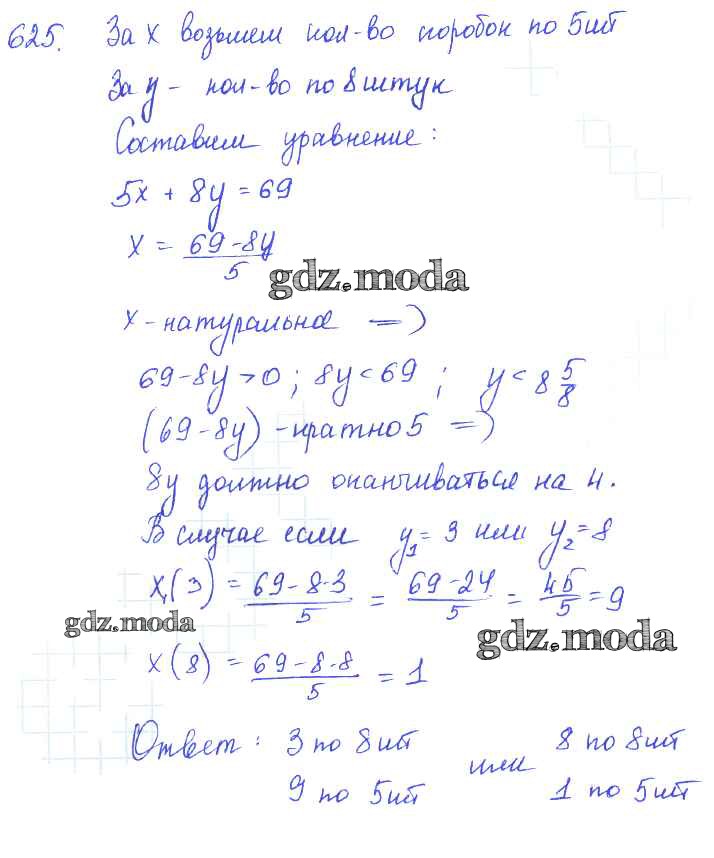 625. За x возьмем кол-во коробок по 5шт
За y - кол-во по 8 штук
Составим уравнение:
5x + 8y = 69
x = (69-8y)/5
gdz.moda
x - натуральное =>
69-8y>0; 8y<69; y<8 5/8
(69-8y) - кратно 5 =>
8y должно оканчиваться на 4.
В случае если y₁=3 или y₂=8
x₁(3) = (69-8·3)/5 = (69-24)/5 = 45/5 = 9
gdz.moda
gdz.moda
x(8) = (69-8·8)/5 = 1
Ответ: 3 по 8шт или 8 по 8шт
9 по 5шт 1 по 5шт